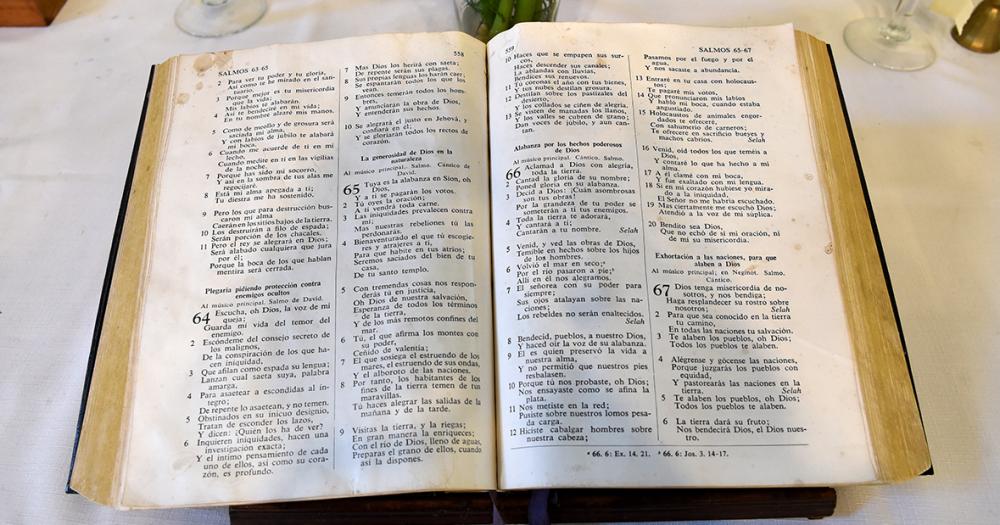 SALMOS 63-65
558
2 Para ver tu poder y tu gloria,
Así como te he mirado en el san-
tuario.
3 Porque mejor es tu misericordia
que la vida;
Mis labios te alabarán.
4 Así te bendeciré en mi vida;
En tu nombre alzaré mis manos.
5 Como de meollo y de grosura será
saciada mi alma,
Y con labios de júbilo te alabará
mi boca,
6 Cuando me acuerde de ti en mi
lecho,
Cuando medite en ti en las vigilias
de la noche.
7 Porque has sido mi socorro,
Y así en la sombra de tus alas me
regocijaré.
8 Está mi alma apegada a ti;
Tu diestra me ha sostenido.
9 Pero los que para destrucción bus-
caron mi alma
Caerán en los sitios bajos de la tierra.
10 Los destruirán a filo de espada;
Serán porción de los chacales.
11 Pero el rey se alegrará en Dios;
Será alabado cualquiera que jura
por él;
Porque la boca de los que hablan
mentira será cerrada.
Plegaria pidiendo protección contra
enemigos ocultos
Al músico principal. Salmo de David.
64 Escucha, oh Dios, la voz de mi
queja;
Guarda mi vida del temor del
enemigo.
2 Escóndeme del consejo secreto de
los malignos,
De la conspiración de los que ha-
cen iniquidad,
3 Que afilan como espada su lengua;
Lanzan cual saeta suya, palabra
amarga,
4 Para asaetear a escondidas al ín-
tegro;
De repente lo asaetean, y no temen.
5 Obstinados en su inicuo designio,
Tratan de esconder los lazos,
Y dicen: ¿Quién los ha de ver?
6 Inquieren iniquidades, hacen una
investigación exacta;
Y el íntimo pensamiento de cada
uno de ellos, así como su cora-
zón, es profundo.
7 Mas Dios los herirá con saeta;
De repente serán sus plagas.
8 Sus propias lenguas los harán caer;
Se espantarán todos los que los
vean.
9 Entonces temerán todos los hom-
bres,
Y anunciarán la obra de Dios,
Y entenderán sus hechos.
10 Se alegrará el justo en Jehová, y
confiará en él;
Y se gloriarán todos los rectos de
corazón.
La generosidad de Dios en la
naturaleza
Al músico principal. Salmo. Cántico de
David.
65 Tuya es la alabanza en Sion, oh
Dios,
Y a ti se pagarán los votos.
2 Tú oyes la oración;
A ti vendrá toda carne.
3 Las iniquidades prevalecen contra
mí;
Mas nuestras rebeliones tú las
perdonarás.
4 Bienaventurado el que tú escogie-
res y atrajeres a ti,
Para que habite en tus atrios;
Seremos saciados del bien de tu
casa,
De tu santo templo.
5 Con tremendas cosas nos respon-
derás tú en justicia,
Oh Dios de nuestra salvación,
Esperanza de todos los términos
de la tierra,
Y de los más remotos confines del
mar.
6 Tú, el que afirma los montes con
su poder,
Ceñido de valentía;
7 El que sosiega el estruendo de los
mares, el estruendo de sus ondas,
Y el alboroto de las naciones.
8 Por tanto, los habitantes de los
fines de la tierra temen de tus
maravillas.
Tú haces alegrar las salidas de la
mañana y de la tarde.
9 Visitas la tierra, y la riegas;
En gran manera la enriqueces;
Con el río de Dios, lleno de aguas,
Preparas el grano de ellos, cuando
así la dispones.
559
SALMOS 65-67
10 Haces que se empapen sus sur-
cos,
Haces descender sus canales;
La ablandas con lluvias,
Bendices sus renuevos.
11 Tú coronas el año con tus bienes,
Y tus nubes destilan grosura.
12 Destilan sobre los pastizales del
desierto,
Y los collados se ciñen de alegría.
13 Se visten de manadas los llanos,
Y los valles se cubren de grano;
Dan voces de júbilo, y aun can-
tan.
Alabanza por los hechos poderosos
de Dios
Al músico principal. Cántico. Salmo.
66 Aclamad a Dios con alegría,
toda la tierra.
2 Cantad la gloria de su nombre;
Poned gloria en su alabanza.
3 Decid a Dios: ¡Cuán asombrosas
son tus obras!
Por la grandeza de tu poder se
someterán a ti tus enemigos.
4 Toda la tierra te adorará,
Y cantará a ti;
Cantarán a tu nombre. Selah
5 Venid, y ved las obras de Dios,
Temible en hechos sobre los hijos
de los hombres.
6 Volvió el mar en seco;ᵃ
Por el río pasaron a pie;ᵇ
Allí en él nos alegramos.
7 El señorea con su poder para
siempre;
Sus ojos atalayan sobre las na-
ciones;
Los rebeldes no serán enaltecidos.
Selah
8 Bendecid, pueblos, a nuestro Dios,
Y haced oír la voz de su alabanza.
9 El es quien preservó la vida a
nuestra alma,
Y no permitió que nuestros pies
resbalasen.
10 Porque tú nos probaste, oh Dios;
Nos ensayaste como se afina la
plata.
11 Nos metiste en la red;
Pusiste sobre nuestros lomos pesa-
da carga.
12 Hiciste cabalgar hombres sobre
nuestra cabeza;
Pasamos por el fuego y por el
agua,
Y nos sacaste a abundancia.
13 Entraré en tu casa con holocaus-
tos;
Te pagaré mis votos,
14 Que pronunciaron mis labios
Y habló mi boca, cuando estaba
angustiado.
15 Holocaustos de animales engor-
dados te ofreceré,
Con sahumerio de carneros;
Te ofreceré en sacrificio bueyes y
machos cabríos. Selah
16 Venid, oíd todos los que teméis a
Dios,
Y contaré lo que ha hecho a mi
alma.
17 A él clamé con mi boca,
Y fue exaltado con mi lengua.
18 Si en mi corazón hubiese yo mira-
do a la iniquidad,
El Señor no me habría escuchado.
19 Mas ciertamente me escuchó Dios;
Atendió a la voz de mi súplica.
20 Bendito sea Dios,
Que no echó de sí mi oración, ni
de mí su misericordia.
Exhortación a las naciones, para que
alaben a Dios
Al músico principal; en Neginot. Salmo.
Cántico.
67 Dios tenga misericordia de no-
sotros, y nos bendiga;
Haga resplandecer su rostro sobre
nosotros; Selah
2 Para que sea conocido en la tierra
tu camino,
En todas las naciones tu salvación.
3 Te alaben los pueblos, oh Dios;
Todos los pueblos te alaben.
4 Alégrense y gócense las naciones,
Porque juzgarás los pueblos con
equidad,
Y pastorearás las naciones en la
tierra. Selah
5 Te alaben los pueblos, oh Dios;
Todos los pueblos te alaben.
6 La tierra dará su fruto;
Nos bendecirá Dios, el Dios nues-
tro.
ᵃ 66. 6: Ex. 14. 21. ᵇ 66. 6: Jos. 3. 14-17.